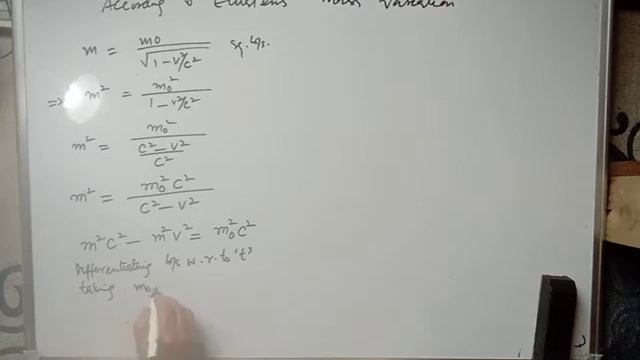 According to Einstein's mass variation
m = m0 / √1 − v²/c² sq. b/s.
=> m² = m0² / 1 − v²/c²
m² = m0² / c² − v² / c²
m² = m0² c² / c² − v²
m²c² − m²v² = m0²c²
Differentiating b/s w.r.to 't'
taking m0